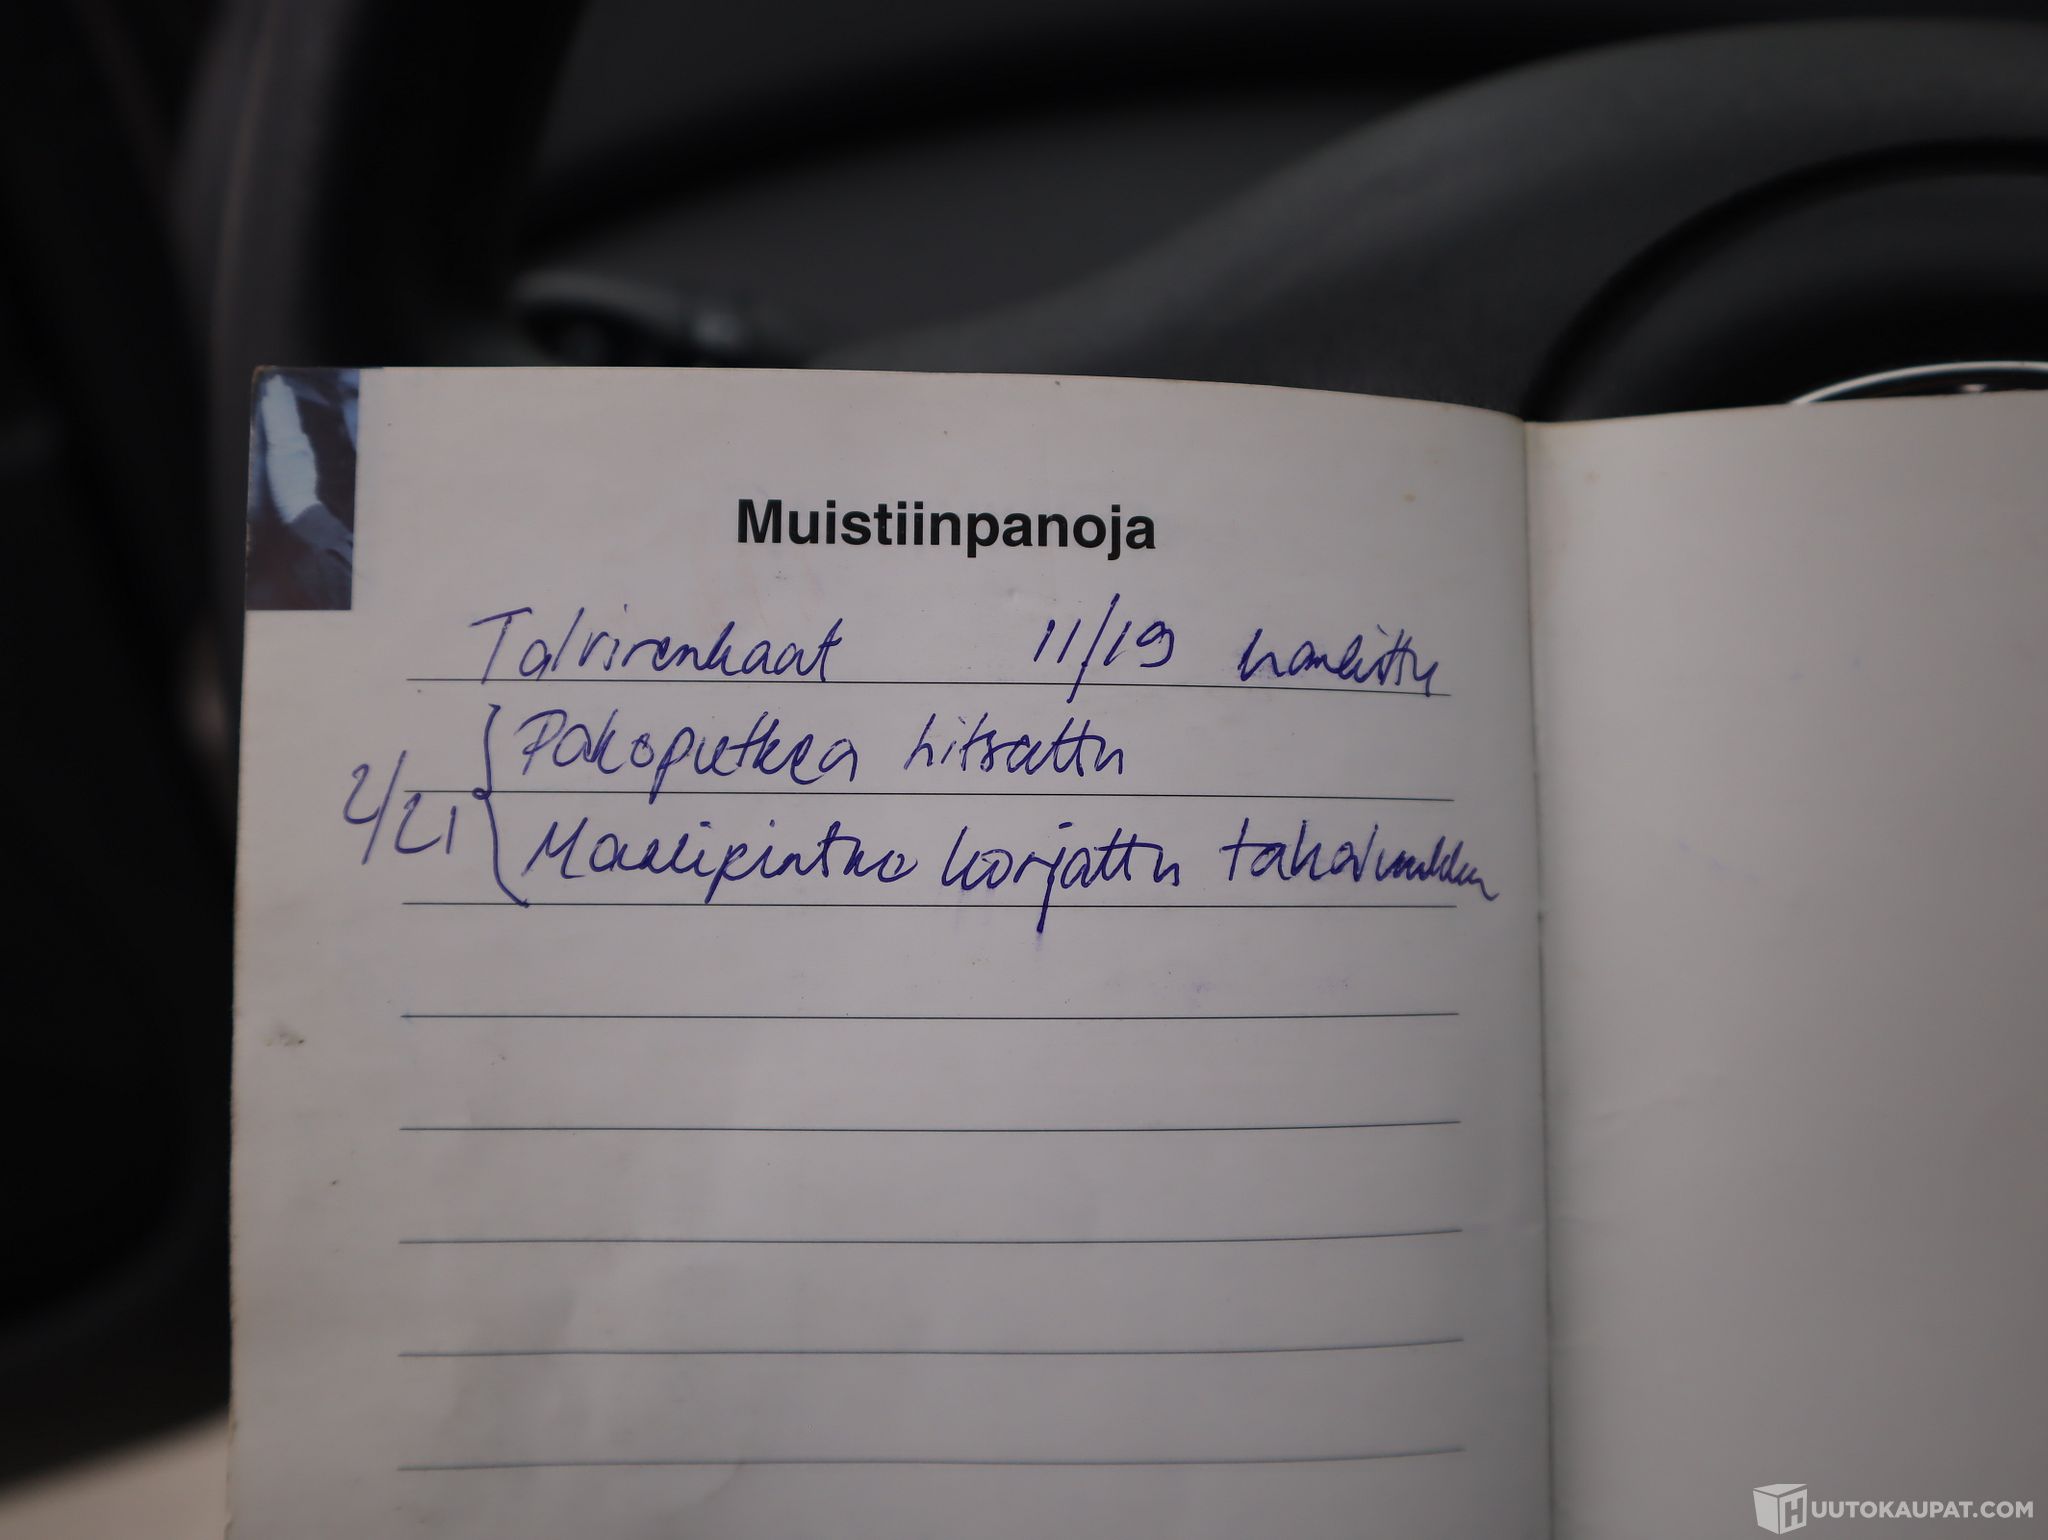 Muistiinpanoja
Talvirenkaat 11/19 hankittu
Pakoputkea hitsattu
2/21
Maalipintaa korjattu takaluukku
HUUTOKAUPAT.COM